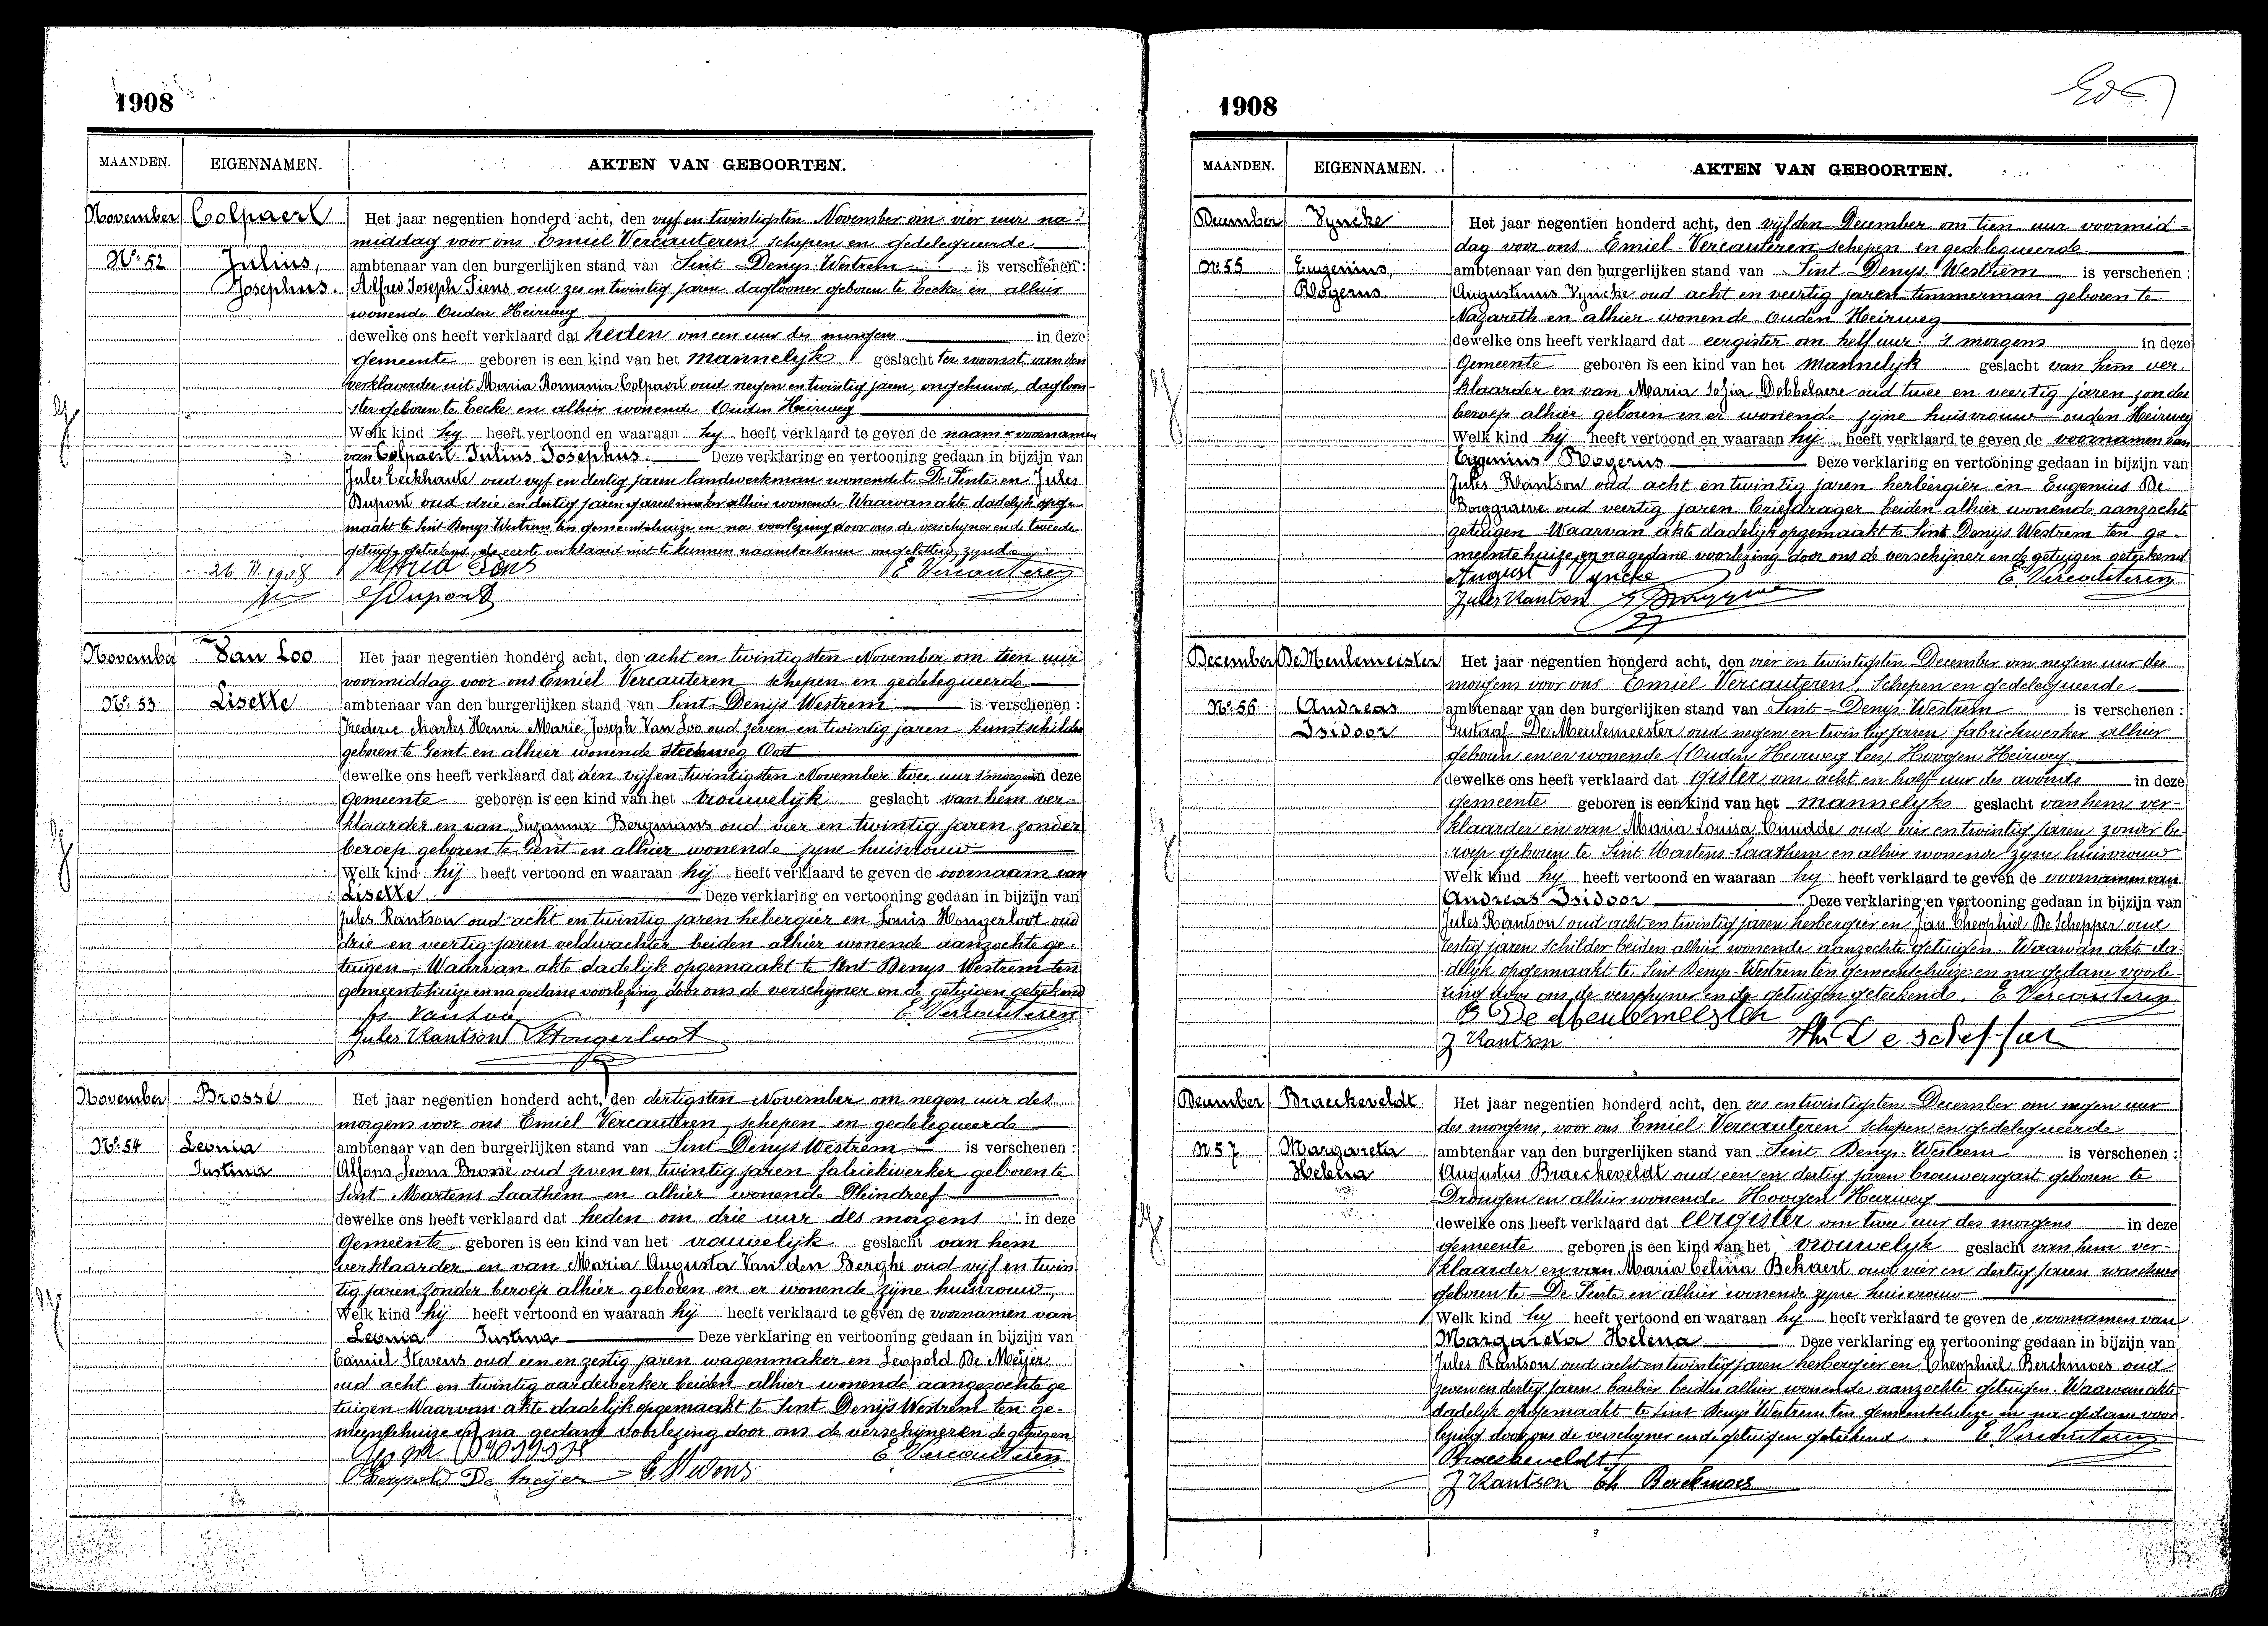 1908
MAANDEN. EIGENNAMEN. AKTEN VAN GEBOORTEN.
November Colpaert Het jaar negentien honderd acht, den vyf en twintigsten November om vier uur na-
middag voor ons Emiel Vercauteren schepen en gedelegueerde
No. 52 Julius, ambtenaar van den burgerlijken stand van Sint Denys Westrem is verschenen:
Josephus. Alfred Joseph Siens oud zes en twintig jaren daglooner geboren te Eecke en alhier
wonende Ouden Heirweg
dewelke ons heeft verklaard dat heden om een uur des morgens in deze
gemeente geboren is een kind van het mannelyk geslacht ter woonst van den
verklaarder uit Maria Romania Colpaert oud negen en twintig jaren, ongehuwd, dagloon-
ster geboren te Eecke en alhier wonende Ouden Heirweg
Welk kind hy heeft vertoond en waaraan hy heeft verklaard te geven de naam & voornamen
van Colpaert Julius Josephus. Deze verklaring en vertooning gedaan in bijzijn van
Jules Eeckhaute oud vyf en dertig jaren landwerkman wonende te De Pinte en Jules
Dupont oud drie en dertig jaren alhier wonende. Waarvan akte dadelyk opge-
maakt te Sint Denys Westrem ten gemeentehuize en na voorlezing door ons de verschyner en de tweede
getuige geteekend, de eerste verklaard niet te kunnen naamteekenen ongeletterd zynde
26 11 1908 E Vercauteren
Dupont
November Van Loo Het jaar negentien honderd acht, den acht en twintigsten November om tien uur
voormiddag voor ons Emiel Vercauteren schepen en gedelegueerde
No. 53 Lisette ambtenaar van den burgerlijken stand van Sint Denijs Westrem is verschenen:
Frederic Charles Henri Marie Joseph Van Loo oud zeven en twintig jaren kunstschilder
geboren te Gent en alhier wonende Steenweg Oost
dewelke ons heeft verklaard dat den vijf en twintigsten November twee uur 's morgens in deze
gemeente geboren is een kind van het vrouwelijk geslacht van hem ver-
klaarder en van Suzanna Bergmans oud vier en twintig jaren zonder
beroep geboren te Gent en alhier wonende zyne huisvrouw
Welk kind hij heeft vertoond en waaraan hij heeft verklaard te geven de voornaam van
Lisette. Deze verklaring en vertooning gedaan in bijzijn van
Jules Rantson oud acht en twintig jaren hebergier en Louis Hongerloot oud
drie en veertig jaren veldwachter beiden alhier wonende aanzochte ge-
tuigen. Waarvan akte dadelijk opgemaakt te Sint Denys Westrem ten
gemeentehuize en na gedane voorlezing door ons de verschyner en de getuigen geteekend
Van Loo E. Vercauteren
Jules Rantson Hongerloot
November Brossé Het jaar negentien honderd acht, den dertigsten November om negen uur des
morgens voor ons Emiel Vercauteren, schepen en gedelegueerde
No. 54 Leonia ambtenaar van den burgerlijken stand van Sint Denys Westrem is verschenen:
Justina Alfons Leons Brossé oud zeven en twintig jaren fabriekwerker geboren te
Sint Martens Laathem en alhier wonende Pleindreef
dewelke ons heeft verklaard dat heden om drie uur des morgens in deze
Gemeente geboren is een kind van het vrouwelijk geslacht van hem
verklaarder en van Maria Augusta Van den Berghe oud vijf en twin
tig jaren zonder beroep alhier geboren en er wonende zijne huisvrouw,
Welk kind hij heeft vertoond en waaraan hij heeft verklaard te geven de voornamen van
Leonia Justina Deze verklaring en vertooning gedaan in bijzijn van
Camiel Stevens oud een en zestig jaren wagenmaker en Leopold De Meÿer
oud acht en twintig aardewerker beiden alhier wonende aangezochte ge
tuigen Waarvan akte dadelijk opgemaakt te Sint Denijs Westrem ten ge-
meentehuize en na gedane voorlezing door ons de verschijner en de getuigen
E Vercauteren
Leopold De Meijer C Stevens
1908
MAANDEN. EIGENNAMEN. AKTEN VAN GEBOORTEN.
December Vyncke Het jaar negentien honderd acht, den vijfden December om tien uur voormid-
dag voor ons Emiel Vercauteren schepen en gedelegueerde
No 55 Eugenius, ambtenaar van den burgerlijken stand van Sint Denys Westrem is verschenen:
Rogerus. Augustinus Vyncke oud acht en veertig jaren timmerman geboren te
Nazareth en alhier wonende Ouden Heirweg
dewelke ons heeft verklaard dat eergister om half uur 's morgens in deze
Gemeente geboren is een kind van het Mannelijk geslacht van hem ver-
klaarder en van Maria Sofia Dobbelaere oud twee en veertig jaren zonder
beroep alhier geboren en er wonende zyne huisvrouw ouden Heirweg
Welk kind hij heeft vertoond en waaraan hij heeft verklaard te geven de voornamen van
Eugenius Rogerus Deze verklaring en vertooning gedaan in bijzijn van
Jules Rantson oud acht en twintig jaren herbergier en Eugenius De
Borggraeve oud veertig jaren briefdrager beiden alhier wonende aanzochte
getuigen Waarvan akte dadelijk opgemaakt te Sint Denijs Westrem ten ge-
meentehuize en na gedane voorlezing door ons de verschijner en de getuigen geteekend
August Vyncke E. Vercauteren
Jules Rantson
December De Meulemeester Het jaar negentien honderd acht, den vier en twintigsten December om negen uur des
morgens voor ons Emiel Vercauteren, Schepen en gedelegueerde
No. 56 Andreas ambtenaar van den burgerlijken stand van Sint Denys Westrem is verschenen:
Isidoor Gustaaf De Meulemeester oud negen en twintig jaren fabriekwerker alhier
geboren en er wonende (Ouden Heirweg lees) Hoogen Heirweg
dewelke ons heeft verklaard dat gister om acht en half uur des avonds in deze
gemeente geboren is een kind van het mannelyk geslacht van hem ver-
klaarder en van Maria Louisa Cnudde oud vier en twintig jaren, zonder be-
roep geboren te Sint Martens-Laathem en alhier wonende zyne huisvrouw
Welk kind hy heeft vertoond en waaraan hy heeft verklaard te geven de voornamen van
Andreas Isidoor Deze verklaring en vertooning gedaan in bijzijn van
Jules Rantson oud acht en twintig jaren herbergier en Jan Theophiel De Schepper oud
zestig jaren schilder beiden alhier wonende aanzochte getuigen. Waarvan akte da-
delyk opgemaakt te Sint Denys-Westrem ten gemeentehuize en na gedane voorle-
zing door ons de verschyner en de getuigen geteekend. E Vercauteren
De Meulemeester
J Rantson
December Braeckeveldt Het jaar negentien honderd acht, den zes en twintigsten December om negen uur
des morgens, voor ons Emiel Vercauteren schepen en gedelegueerde
No 57 Margareta ambtenaar van den burgerlijken stand van Sint Denys-Westrem is verschenen:
Helena Augustus Braeckeveldt oud een en dertig jaren brouwersgast geboren te
Drongen en alhier wonende Hoogen Heirweg
dewelke ons heeft verklaard dat eergister om twee uur des morgens in deze
gemeente geboren is een kind van het vrouwelyk geslacht van hem ver-
klaarder en van Maria Celina Bekaert oud vier en dertig jaren
geboren te De Pinte en alhier wonende zyne huisvrouw
Welk kind hy heeft vertoond en waaraan hy heeft verklaard te geven de voornamen van
Margareta Helena Deze verklaring en vertooning gedaan in bijzijn van
Jules Rantson oud acht en twintig jaren herbergier en Theophiel Berckmoes oud
zeven en dertig jaren barbier beiden alhier wonende aanzochte getuigen. Waarvan akte
dadelyk opgemaakt te Sint Denys Westrem ten gemeentehuize en na gedane voor-
lezing door ons de verschyner en de getuigen geteekend. E. Vercauteren
Braeckeveldt
J Rantson Th Berckmoes